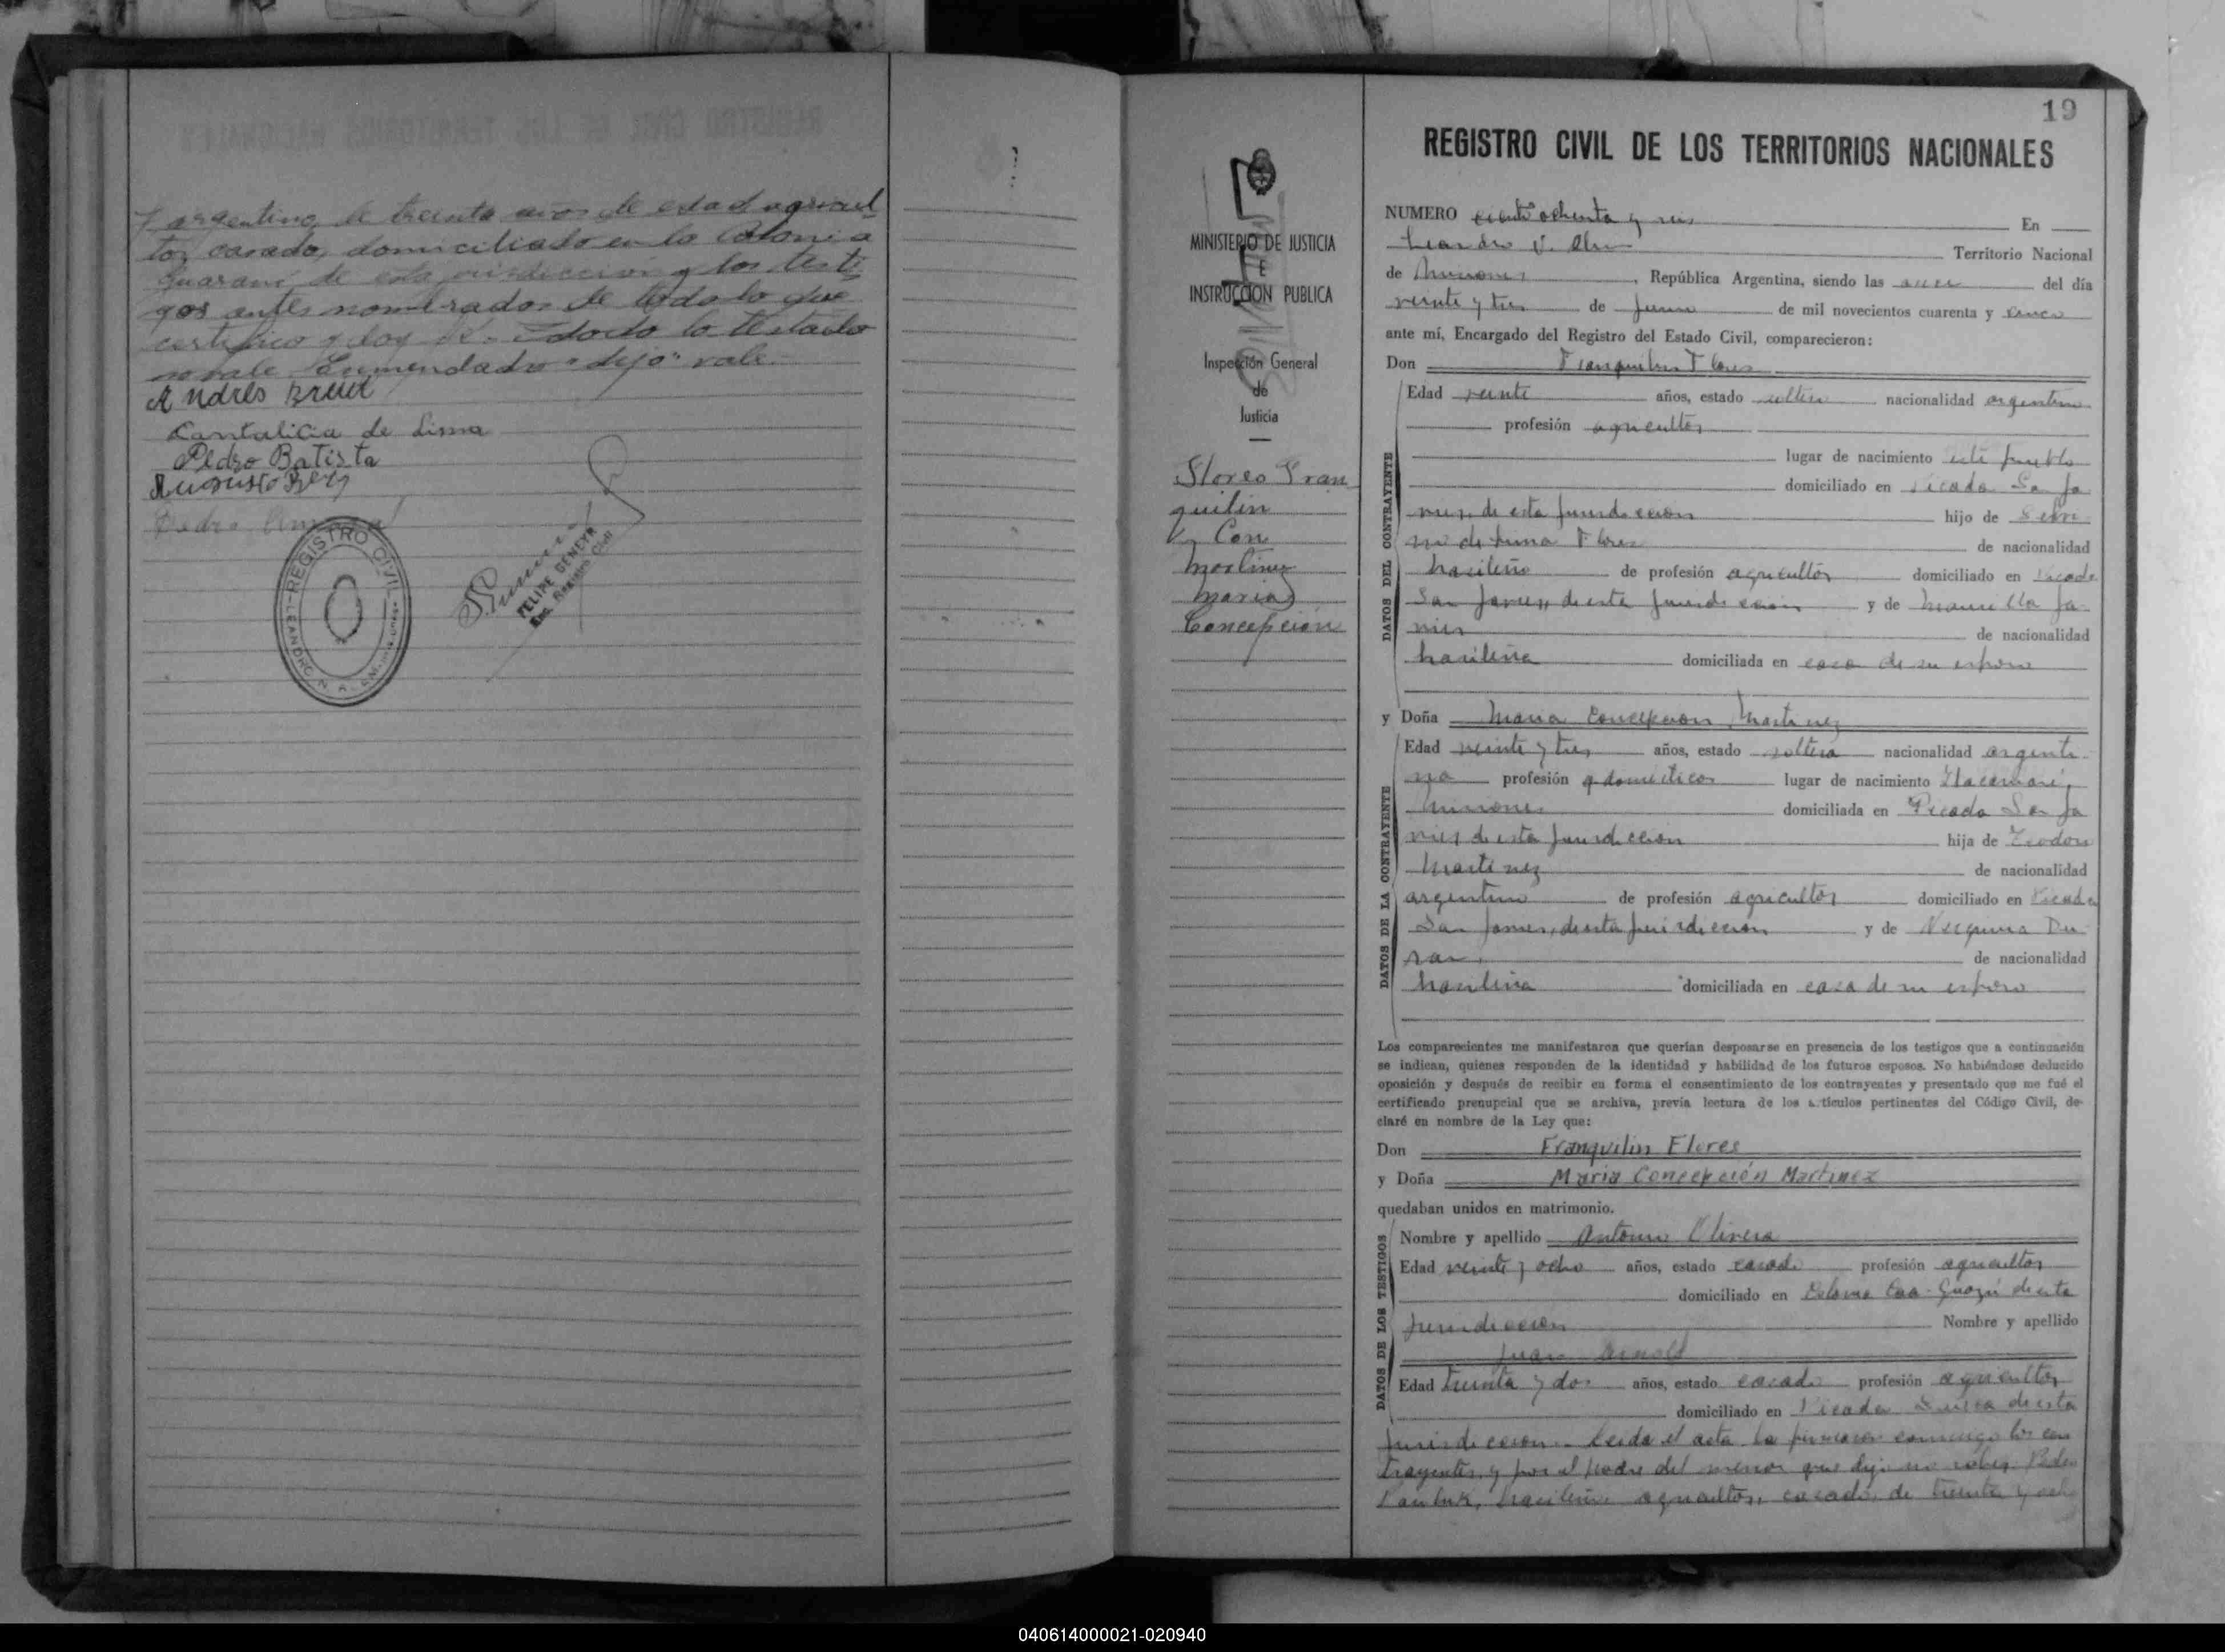 y argentino, de treinta años de edad agricul
tor, casado, domiciliado en la Colonia
Guaraní de esta jurisdicción y los testi
gos antes nombrados de todo lo que
certifico y doy fé. Todo lo testado
no vale Enmendado "dijo" vale.
Andrés
Cantalicia de Lima
Pedro Batista
Augusto
Pedro
REGISTRO CIVIL
LEANDRO N. A.
FELIPE GENEYR
Enc. Registro Civil
MINISTERIO DE JUSTICIA
E
INSTRUCCION PUBLICA
Inspección General
de
Justicia
Flores Fran
quilin
y Con
Martinez
Maria
Concepción
19
REGISTRO CIVIL DE LOS TERRITORIOS NACIONALES
NUMERO ciento ochenta y seis En
Leandro N. Alem Territorio Nacional
de Misiones, República Argentina, siendo las once del día
veinte y tres de Junio de mil novecientos cuarenta y cinco
ante mí, Encargado del Registro del Estado Civil, comparecieron:
Don Franquilin Flores
DATOS DEL CONTRAYENTE
Edad veinte años, estado soltero nacionalidad argentino
profesión agricultor
lugar de nacimiento este pueblo
domiciliado en Picada San Ja
vier, de esta jurisdiccion hijo de
Flores de nacionalidad
brasileño de profesión agricultor domiciliado en Picada
San Javier, de esta jurisdiccion y de Ja-
vier de nacionalidad
brasileña domiciliada en casa de su esposo
y Doña Maria Concepcion Martinez
DATOS DE LA CONTRAYENTE
Edad veinte y tres años, estado soltera nacionalidad argenti-
na profesión q. domésticos lugar de nacimiento Itacaruaré,
Misiones domiciliada en Picada San Ja
vier, de esta jurisdiccion hija de Teodoro
Martinez de nacionalidad
argentino de profesión agricultor domiciliado en Picada
San Javier, de esta jurisdiccion y de Du-
ran, de nacionalidad
brasileña domiciliada en casa de su esposo
Los comparecientes me manifestaron que querían desposarse en presencia de los testigos que a continuación
se indican, quienes responden de la identidad y habilidad de los futuros esposos. No habiéndose deducido
oposición y después de recibir en forma el consentimiento de los contrayentes y presentado que me fué el
certificado prenupcial que se archiva, previa lectura de los artículos pertinentes del Código Civil, de-
claré en nombre de la Ley que:
Don Franquilin Flores
y Doña Maria Concepción Martinez
quedaban unidos en matrimonio.
DATOS DE LOS TESTIGOS
Nombre y apellido Antonio Olivera
Edad veinte y ocho años, estado casado profesión agricultor
domiciliado en Colonia Caa-Guazú de esta
jurisdiccion Nombre y apellido
Juan Arnold
Edad treinta y dos años, estado casado profesión agricultor
domiciliado en Picada Suiza de esta
jurisdiccion.- Leida el acta la firmaron conmigo los con
trayentes, y por el padre del menor que dijo no saber Pedro
brasileño agricultor, casado, de treinta y ocho
040614000021-020940